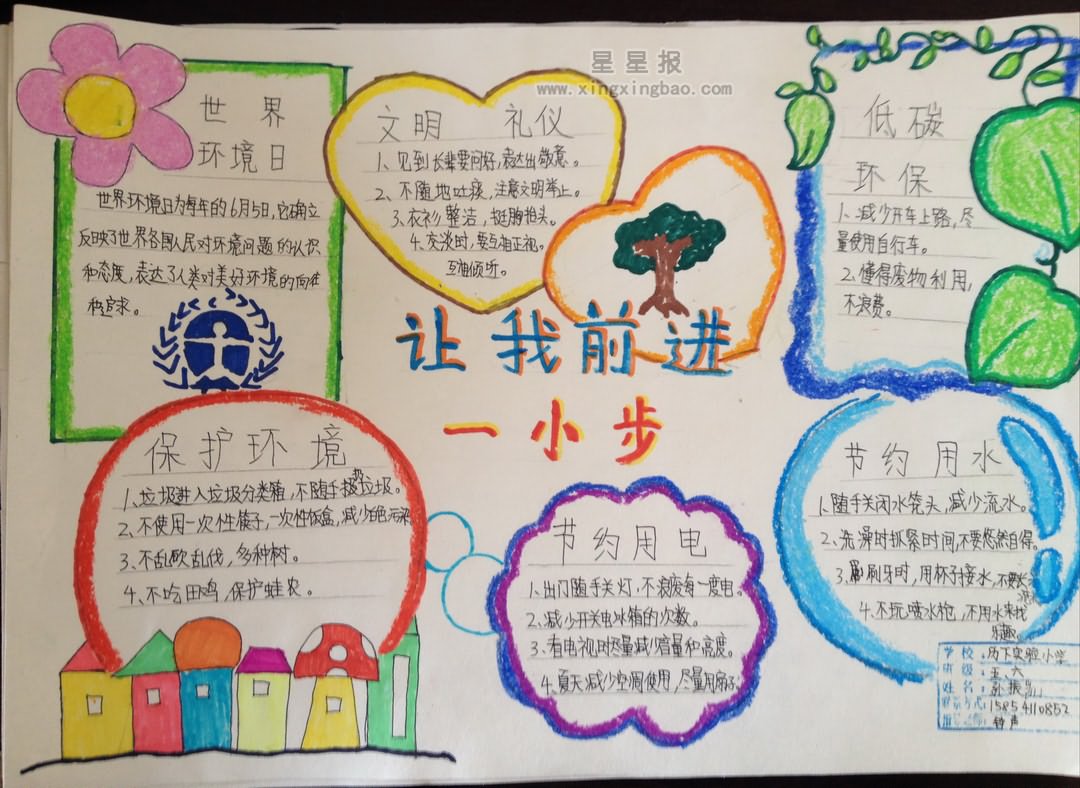 星星报
www.xingxingbao.com
世界
环境日
世界环境日为每年的6月5日,它确立
反映了世界各国人民对环境问题的认识
和态度,表达了人类对美好环境的向往
和追求。
文明 礼仪
1、见到长辈要问好,表达出敬意。
2、不随地吐痰,注意文明举止。
3、衣衫整洁,挺胸抬头。
4、交谈时,要互相正视。
互相倾听。
低碳
环保
1、减少开车上路,尽
量使用自行车。
2、懂得废物利用,
不浪费。
让我前进
一小步
保护环境
1、垃圾进入垃圾分类箱,不随手扔垃圾。
2、不使用一次性筷子,一次性饭盒,减少白色污染
3、不乱砍乱伐,多种树。
4、不吃田鸡,保护蛙农。
节约用电
1、出门随手关灯,不浪费每一度电。
2、减少开关电冰箱的次数。
3、看电视时尽量减少音量和高度。
4、夏天减少空调使用,尽量用扇子
节约用水
1、随手关闭水龙头,减少流水。
2、洗澡时抓紧时间,不要悠然自得。
3、刷牙时,用杯子接水,不要长
4、不玩喷水枪,不用水来找
乐趣。
学校:历下实验小学
班级:五六
姓名:孙振
联系方式:15854110852
指导老师:钟声